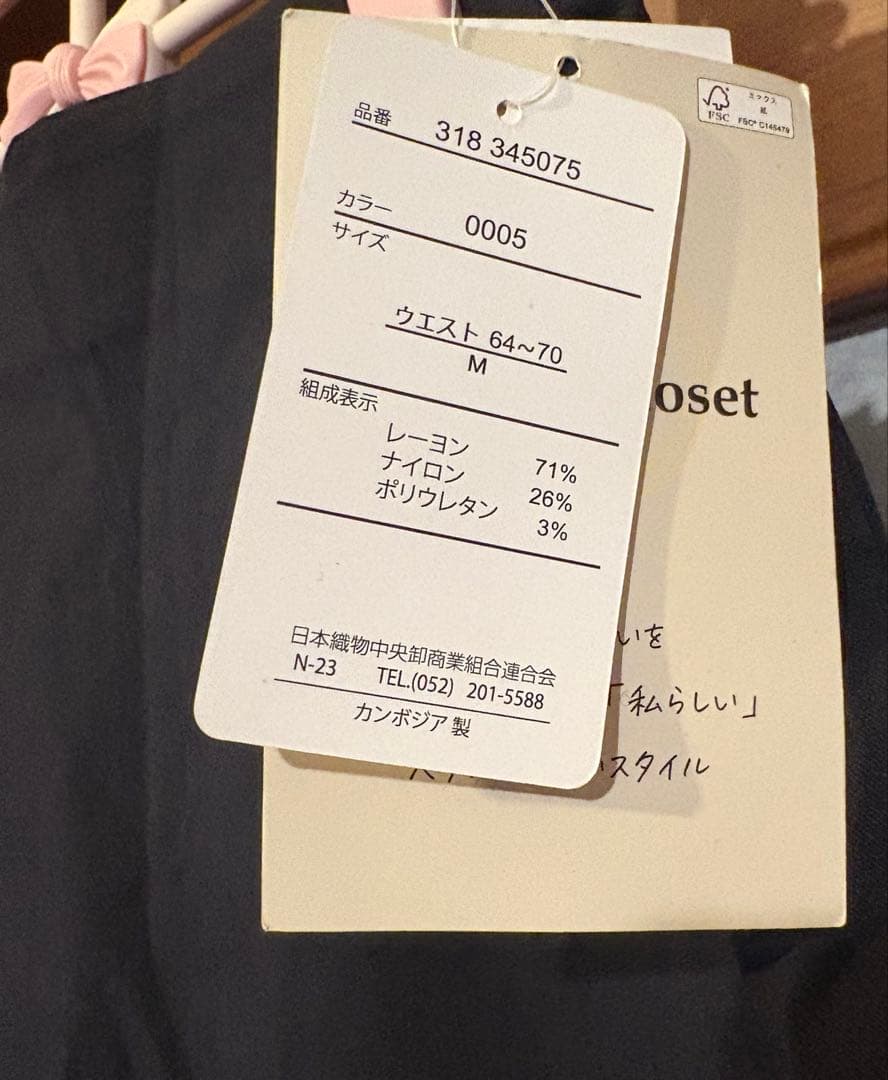 品番 318 345075
カラー 0005
サイズ
ウエスト 64～70
M
組成表示
レーヨン 71%
ナイロン 26%
ポリウレタン 3%
日本織物中央卸商業組合連合会
N-23 TEL.(052) 201-5588
カンボジア 製
FSC
ミックス
紙
FSC® C145479
oset
いを
「私らしい」
スタイル